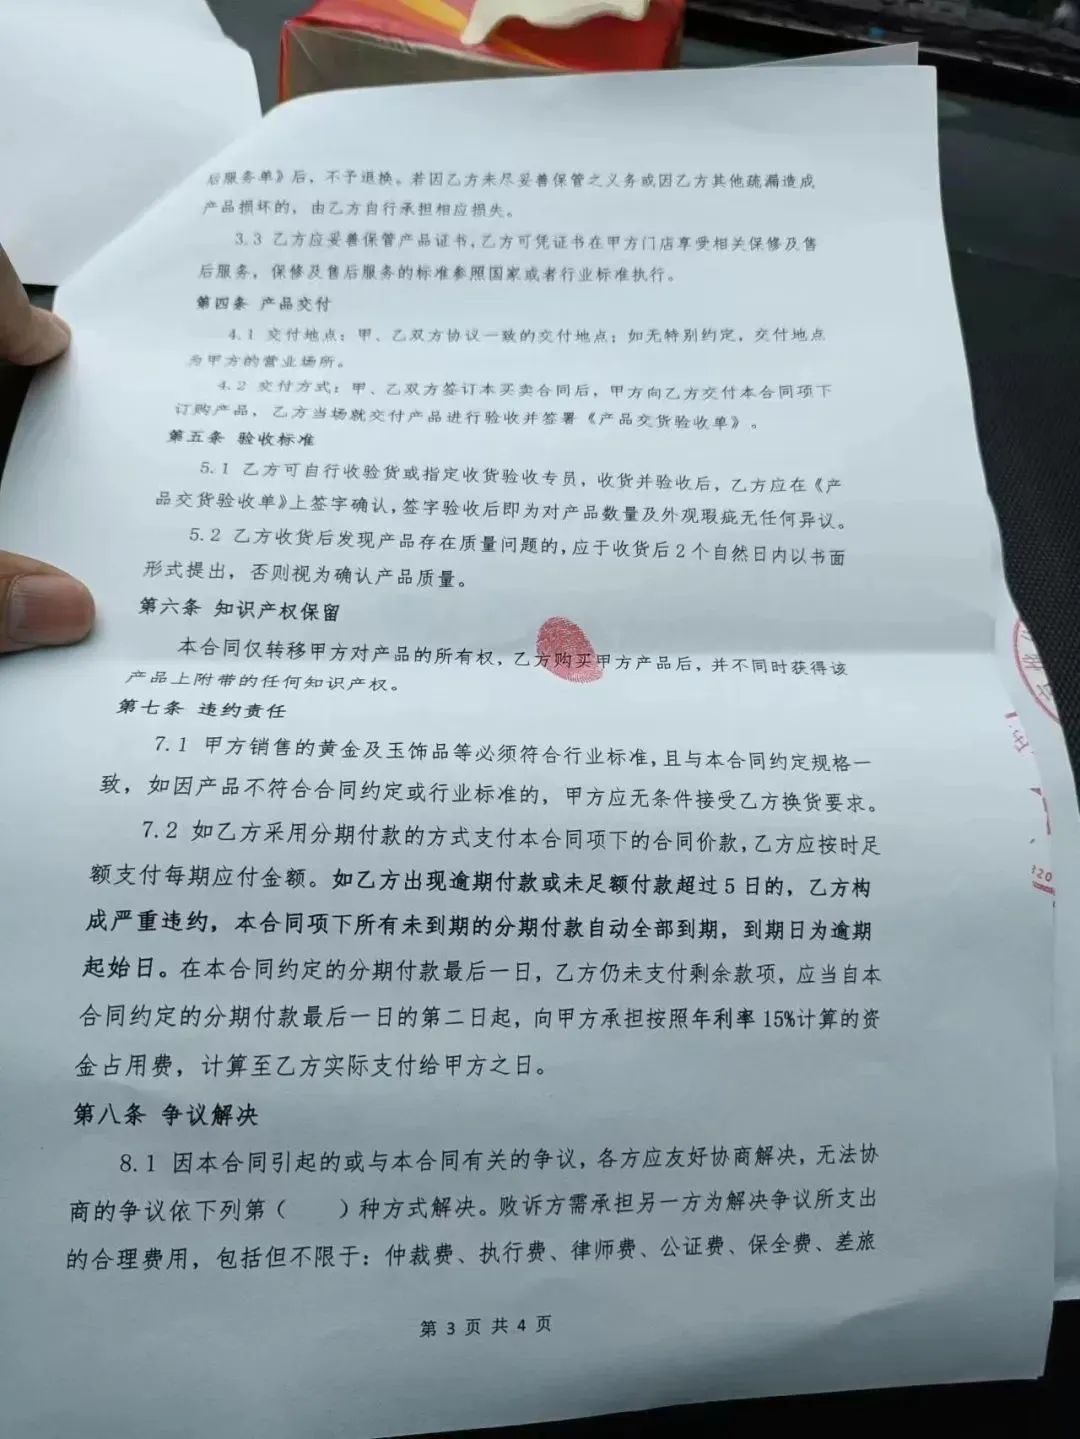 后服务单》后，不予退换。若因乙方未尽妥善保管之义务或因乙方其他疏漏造成
产品损坏的，由乙方自行承担相应损失。
3.3 乙方应妥善保管产品证书，乙方可凭证书在甲方门店享受相关保修及售
后服务，保修及售后服务的标准参照国家或者行业标准执行。
第四条 产品交付
4.1 交付地点：甲、乙双方协议一致的交付地点；如无特别约定，交付地点
为甲方的营业场所。
4.2 交付方式：甲、乙双方签订本买卖合同后，甲方向乙方交付本合同项下
订购产品，乙方当场就交付产品进行验收并签署《产品交货验收单》。
第五条 验收标准
5.1 乙方可自行收验货或指定收货验收专员，收货并验收后，乙方应在《产
品交货验收单》上签字确认，签字验收后即为对产品数量及外观瑕疵无任何异议。
5.2 乙方收货后发现产品存在质量问题的，应于收货后 2 个自然日内以书面
形式提出，否则视为确认产品质量。
第六条 知识产权保留
本合同仅转移甲方对产品的所有权，乙方购买甲方产品后，并不同时获得该
产品上附带的任何知识产权。
第七条 违约责任
7.1 甲方销售的黄金及玉饰品等必须符合行业标准，且与本合同约定规格一
致，如因产品不符合合同约定或行业标准的，甲方应无条件接受乙方换货要求。
7.2 如乙方采用分期付款的方式支付本合同项下的合同价款，乙方应按时足
额支付每期应付金额。如乙方出现逾期付款或未足额付款超过 5 日的，乙方构
成严重违约，本合同项下所有未到期的分期付款自动全部到期，到期日为逾期
起始日。在本合同约定的分期付款最后一日，乙方仍未支付剩余款项，应当自本
合同约定的分期付款最后一日的第二日起，向甲方承担按照年利率 15%计算的资
金占用费，计算至乙方实际支付给甲方之日。
第八条 争议解决
8.1 因本合同引起的或与本合同有关的争议，各方应友好协商解决，无法协
商的争议依下列第（    ）种方式解决。败诉方需承担另一方为解决争议所支出
的合理费用，包括但不限于：仲裁费、执行费、律师费、公证费、保全费、差旅
第 3 页 共 4 页